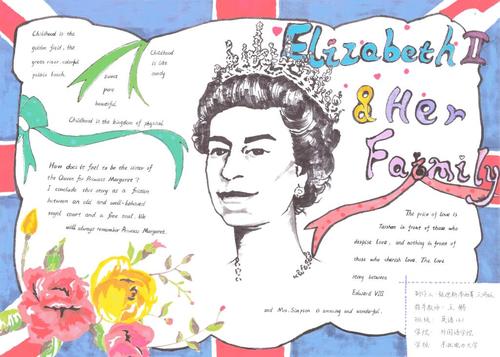 Elizabeth II
& Her
Faimily
Childhood is the
golden field, the
green river, colorful
pebble beach.
Childhood
is like
candy
sweet
pure
beautiful
Childhood is the kingdom of physical
How does it feel to be the sister of
the Queen for Princess Margaret?
I conclude this story as a friction
between an old and well-behaved
royal court and a free soul. We
will always remember Princess Margaret.
The price of love is
in front of those who
despise love, and nothing in front of
those who cherish love. The love
story between
Edward VIII
and Mrs. Simpson is amusing and wonderful.
指导教师：王
班级：英语
学院：外国语学院
学校：东北电力大学